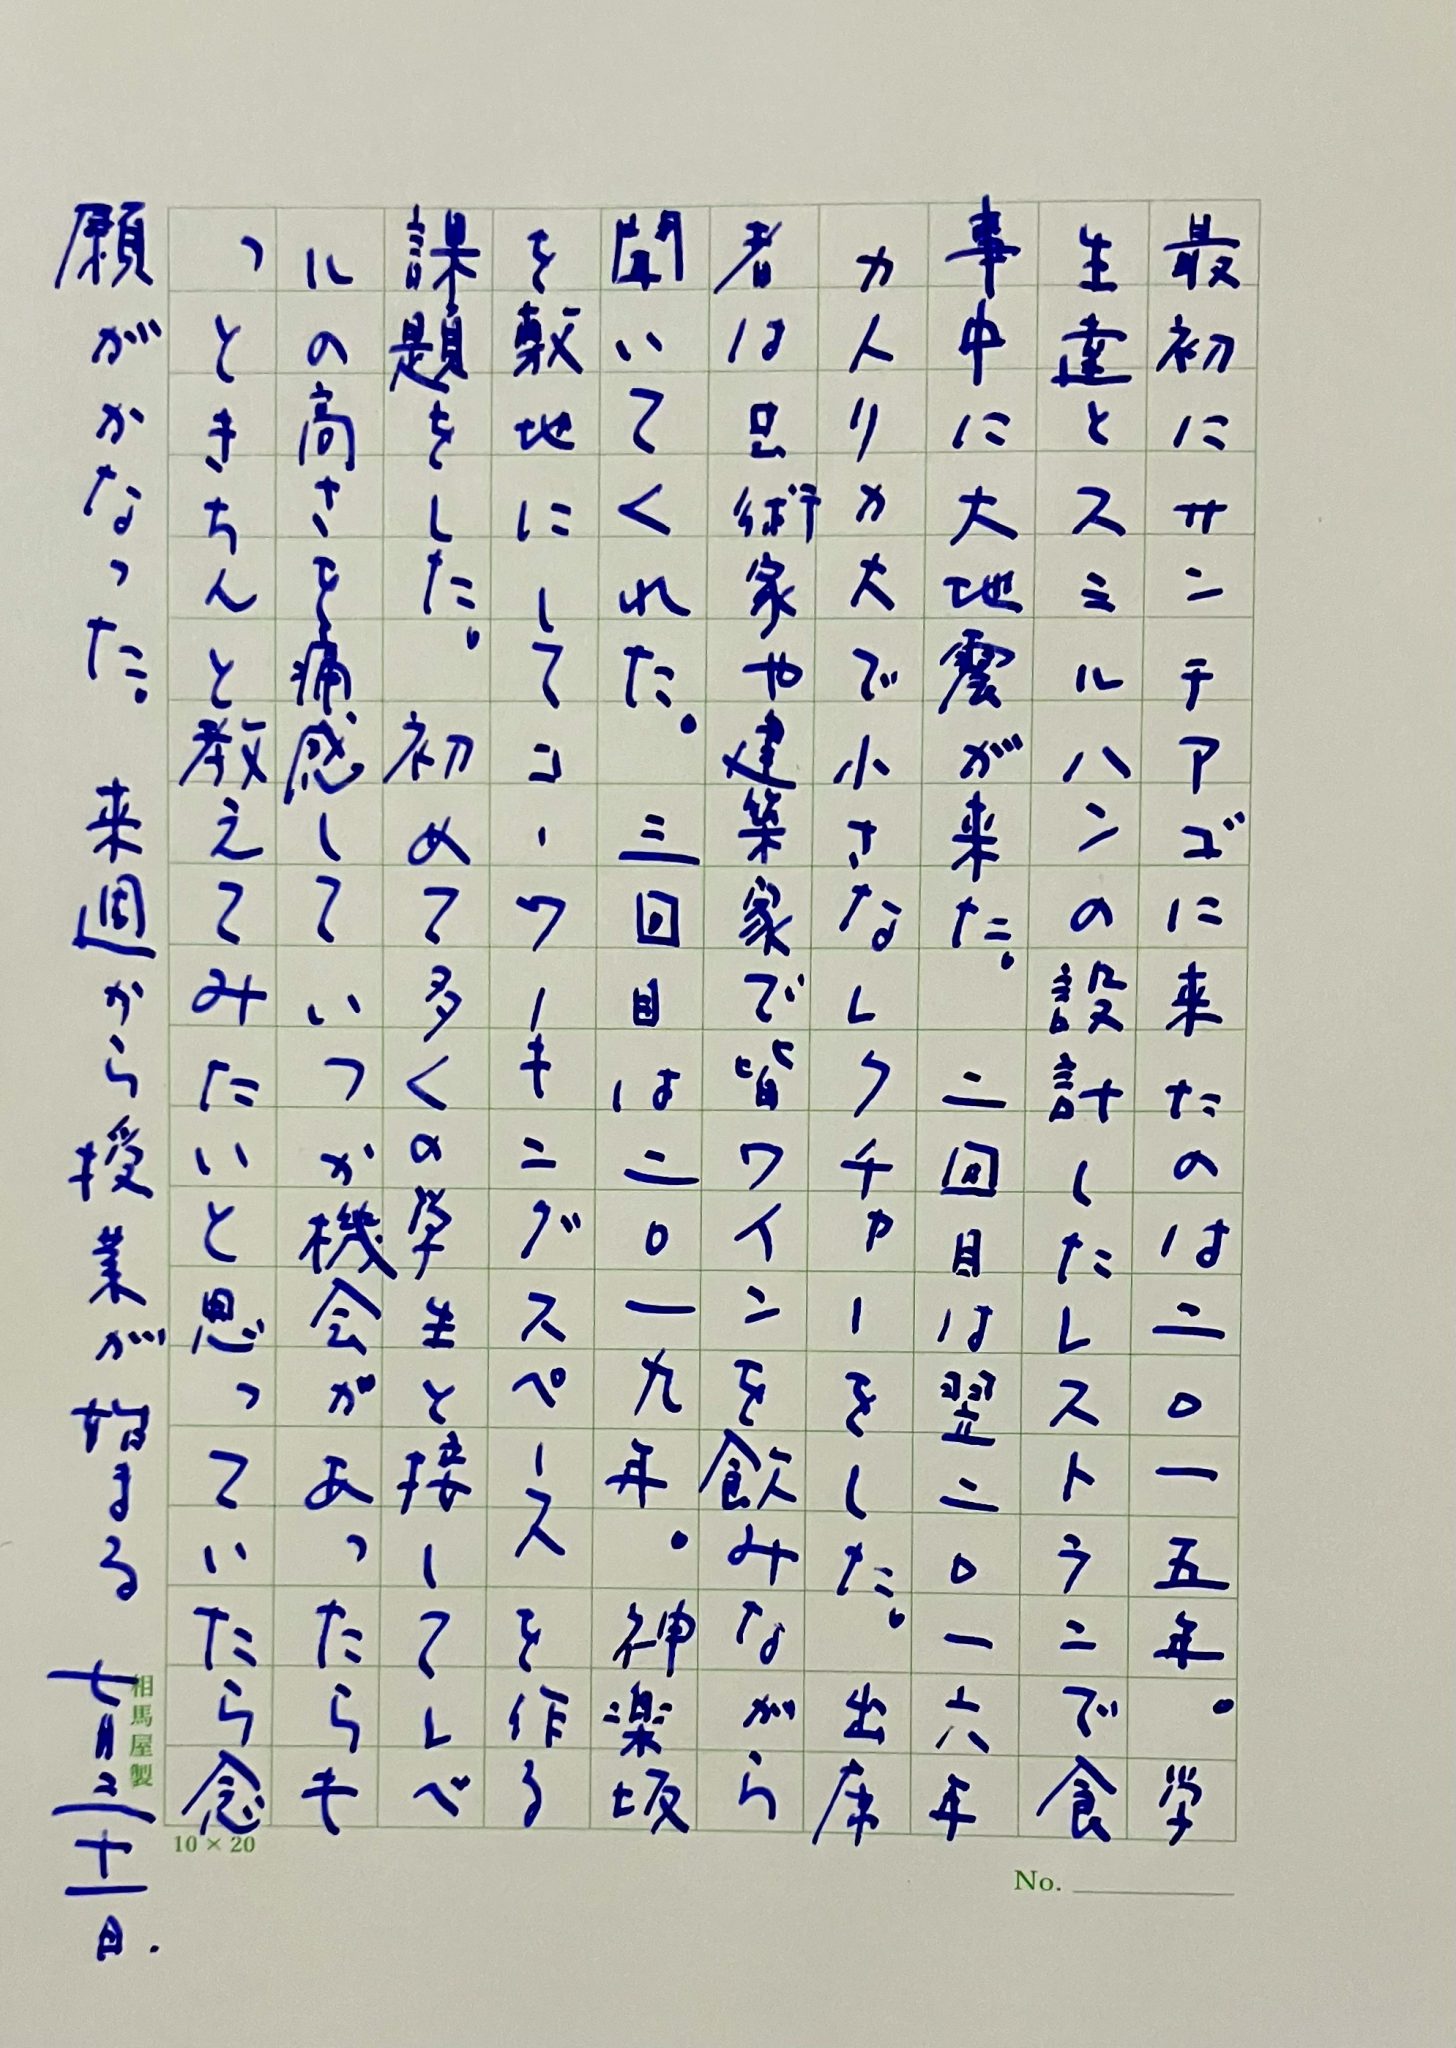 最初にサンテアゴに来たのは二〇一五年。学
生達とスミルハンの設計したレストランで食
事中に大地震が来た。二回目は翌二〇一六年
カ人リカ大で小さなレクチャーをした。出席
者は芸術家や建築家で皆ワインを飲みながら
聞いてくれた。三回目は二〇一九年。神楽坂
を敷地にしてコ・ワーキングスペースを作る
課題をした。初めて多くの学生と接してレベ
ルの高さを痛感していつか機会があったらキ
っときちんと教えてみたいと思っていたら念
願がかなった。来週から授業が始まる
七月三十一日.
相馬屋製
10×20
No.